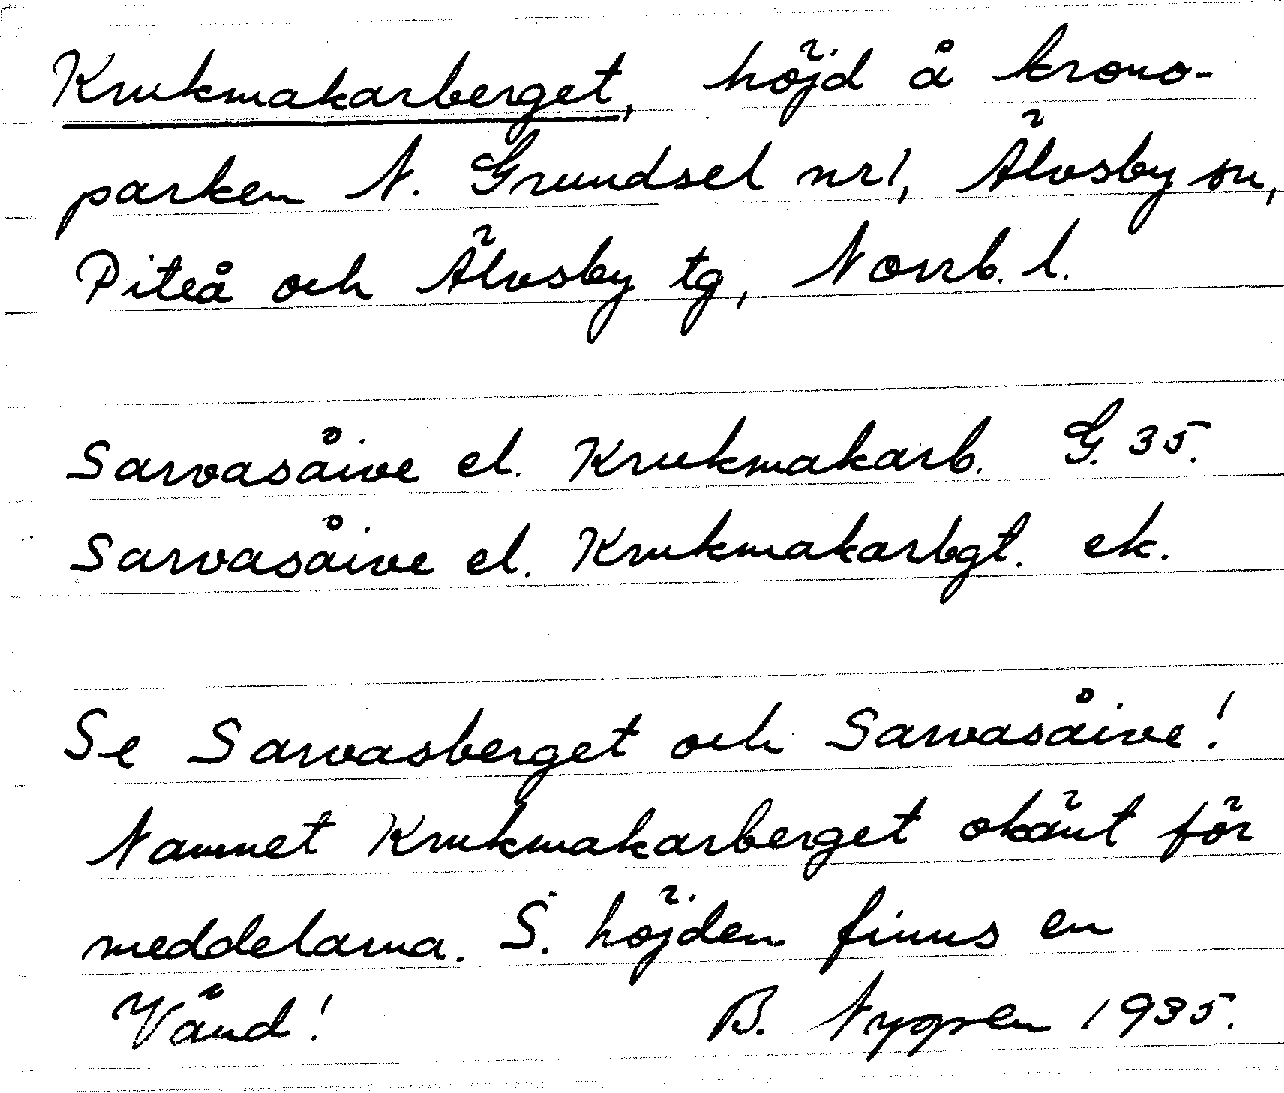 Krukmakarberget, höjd å krono-
parken N. Grundsel nr 1, Älvsby sn,
Piteå och Älvsby tg, Norrb. l.
Sarvasåive el. Krukmakarb. G. 35.
Sarvasåive el. Krukmakarbgt. ek.
Se Sarvasberget och Sarvasåive!
Namnet Krukmakarberget okänt för
meddelarna. S. höjden finns en
Vänd! B. Nygren 1935.